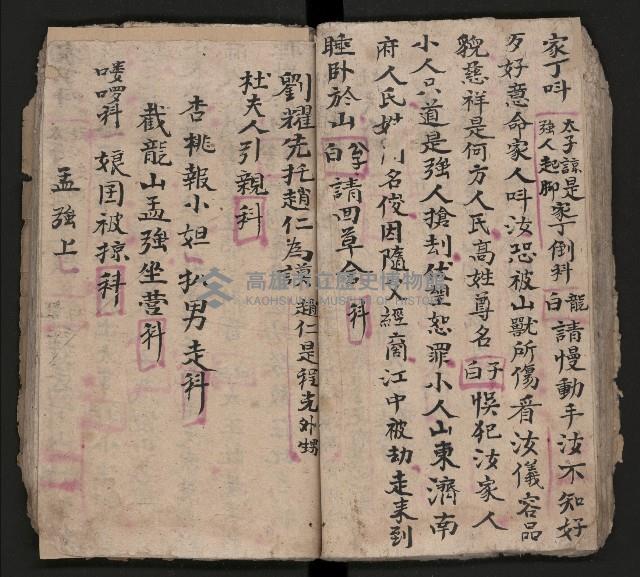 家丁呌 太子諒是強人起腳 家丁倒科 龍白 請慢動手汝不知好
歹好意命家人呌汝恐被山獸所傷看汝儀容品
貌慈祥是何方人民高姓尊名 子白 悞犯汝家人
小人只道是強人搶刼 恕罪小人山東濟南
府人氏姓 名俊因隨 經商江中被劫走来到
睡卧於山 白 請回草舍 科
劉耀先托趙仁為 趙仁是程先外甥
杜夫人引親 科
杏桃報小妲 扒男走科
截龍山孟強坐營科
嘍啰科 娘囝被掠 科
孟強上
高雄市立歷史博物館
KAOHSIUNG MUSEUM OF HISTORY